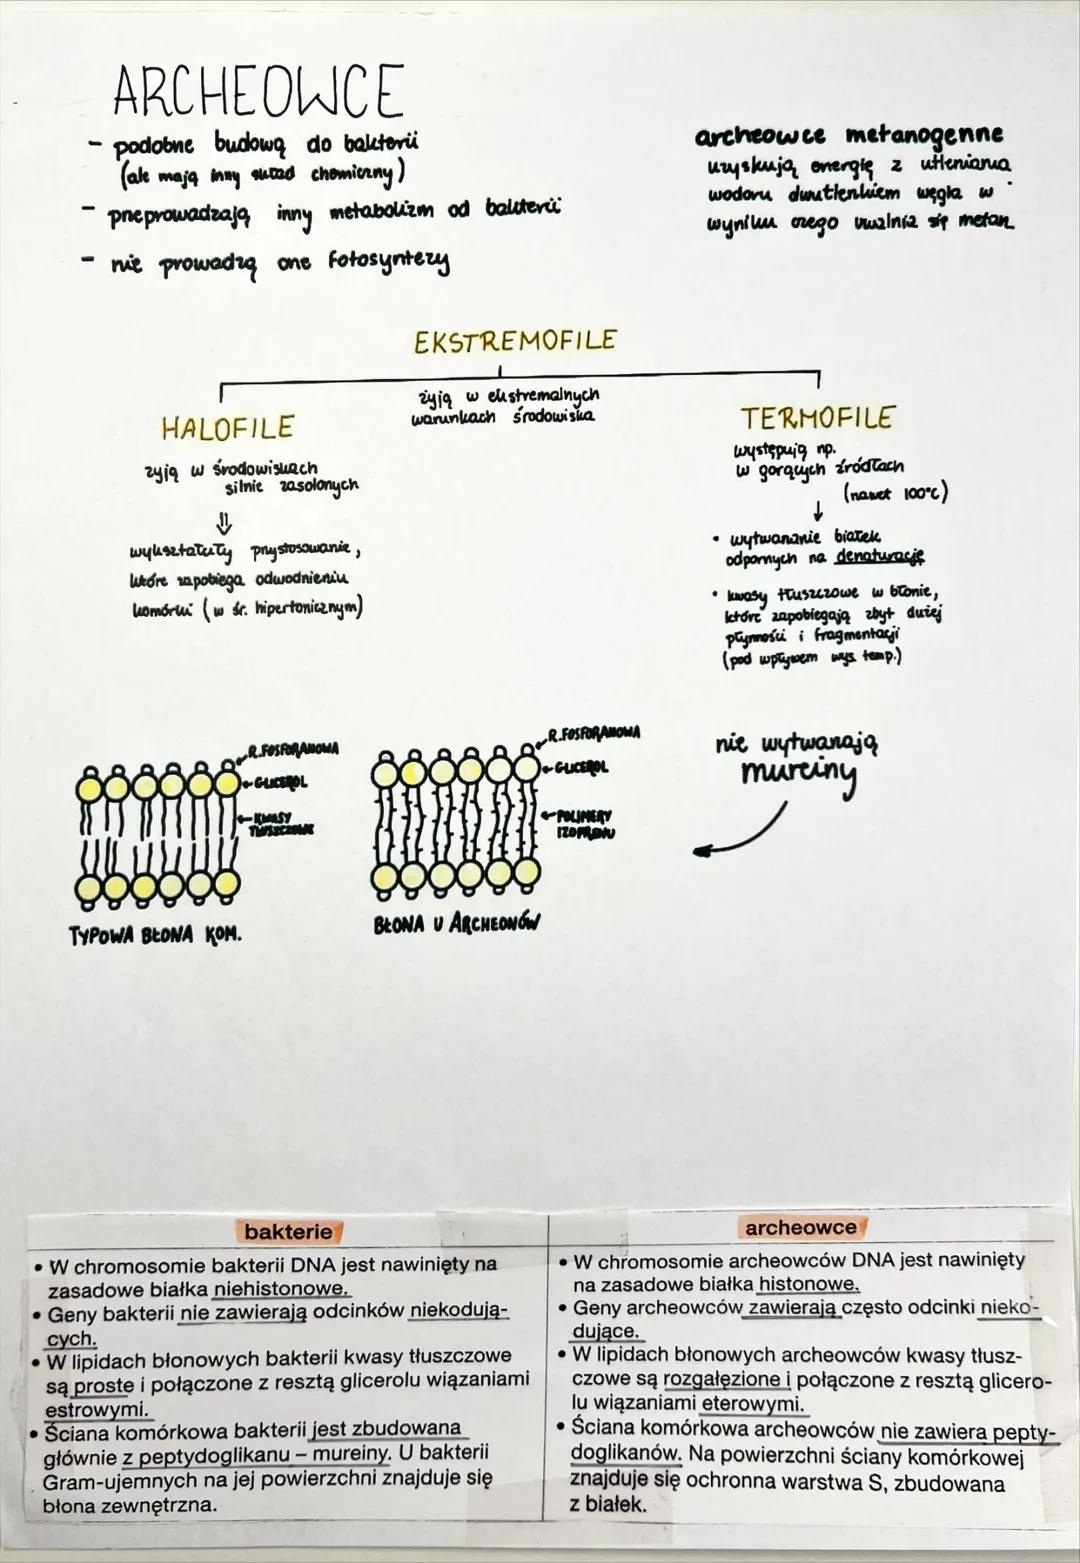 ARCHEOWCE
- podobne budową do bakterii
(ale mają inny skład chemiczny)
- przeprowadzają inny metabolizm od bakterii
- nie prowadzą one fotosyntezy
archeowce metanogenne
uzyskują energię z utleniania
wodoru dwutlenkiem węgla w
wyniku czego uwalnia się metan
EKSTREMOFILE
żyją w ekstremalnych
warunkach środowiska
HALOFILE
żyją w środowiskach
silnie zasolonych
⇓
wykształciły przystosowanie,
które zapobiega odwodnieniu
komórki (w śr. hipertonicznym)
TERMOFILE
występują np.
w gorących źródłach
(nawet 100°C)
↓
• wytwarzanie białek
odpornych na denaturację
• kwasy tłuszczowe w błonie,
które zapobiegają zbyt dużej
płynności i fragmentacji
(pod wpływem wys. temp.)
R.FOSFORANOWA
GLICEROL
KWASY
TŁUSZCZOWE
TYPOWA BŁONA KOM.
R.FOSFORANOWA
GLICEROL
POLIMERY
IZOPRENU
BŁONA U ARCHEONÓW
nie wytwarzają
mureiny
bakterie
• W chromosomie bakterii DNA jest nawinięty na
zasadowe białka niehistonowe.
• Geny bakterii nie zawierają odcinków niekodują-
cych.
• W lipidach błonowych bakterii kwasy tłuszczowe
są proste i połączone z resztą glicerolu wiązaniami
estrowymi.
• Ściana komórkowa bakterii jest zbudowana
głównie z peptydoglikanu – mureiny. U bakterii
Gram-ujemnych na jej powierzchni znajduje się
błona zewnętrzna.
archeowce
• W chromosomie archeowców DNA jest nawinięty
na zasadowe białka histonowe.
• Geny archeowców zawierają często odcinki nieko-
dujące.
• W lipidach błonowych archeowców kwasy tłusz-
czowe są rozgałęzione i połączone z resztą glicero-
lu wiązaniami eterowymi.
• Ściana komórkowa archeowców nie zawiera pepty-
doglikanów. Na powierzchni ściany komórkowej
znajduje się ochronna warstwa S, zbudowana
z białek.